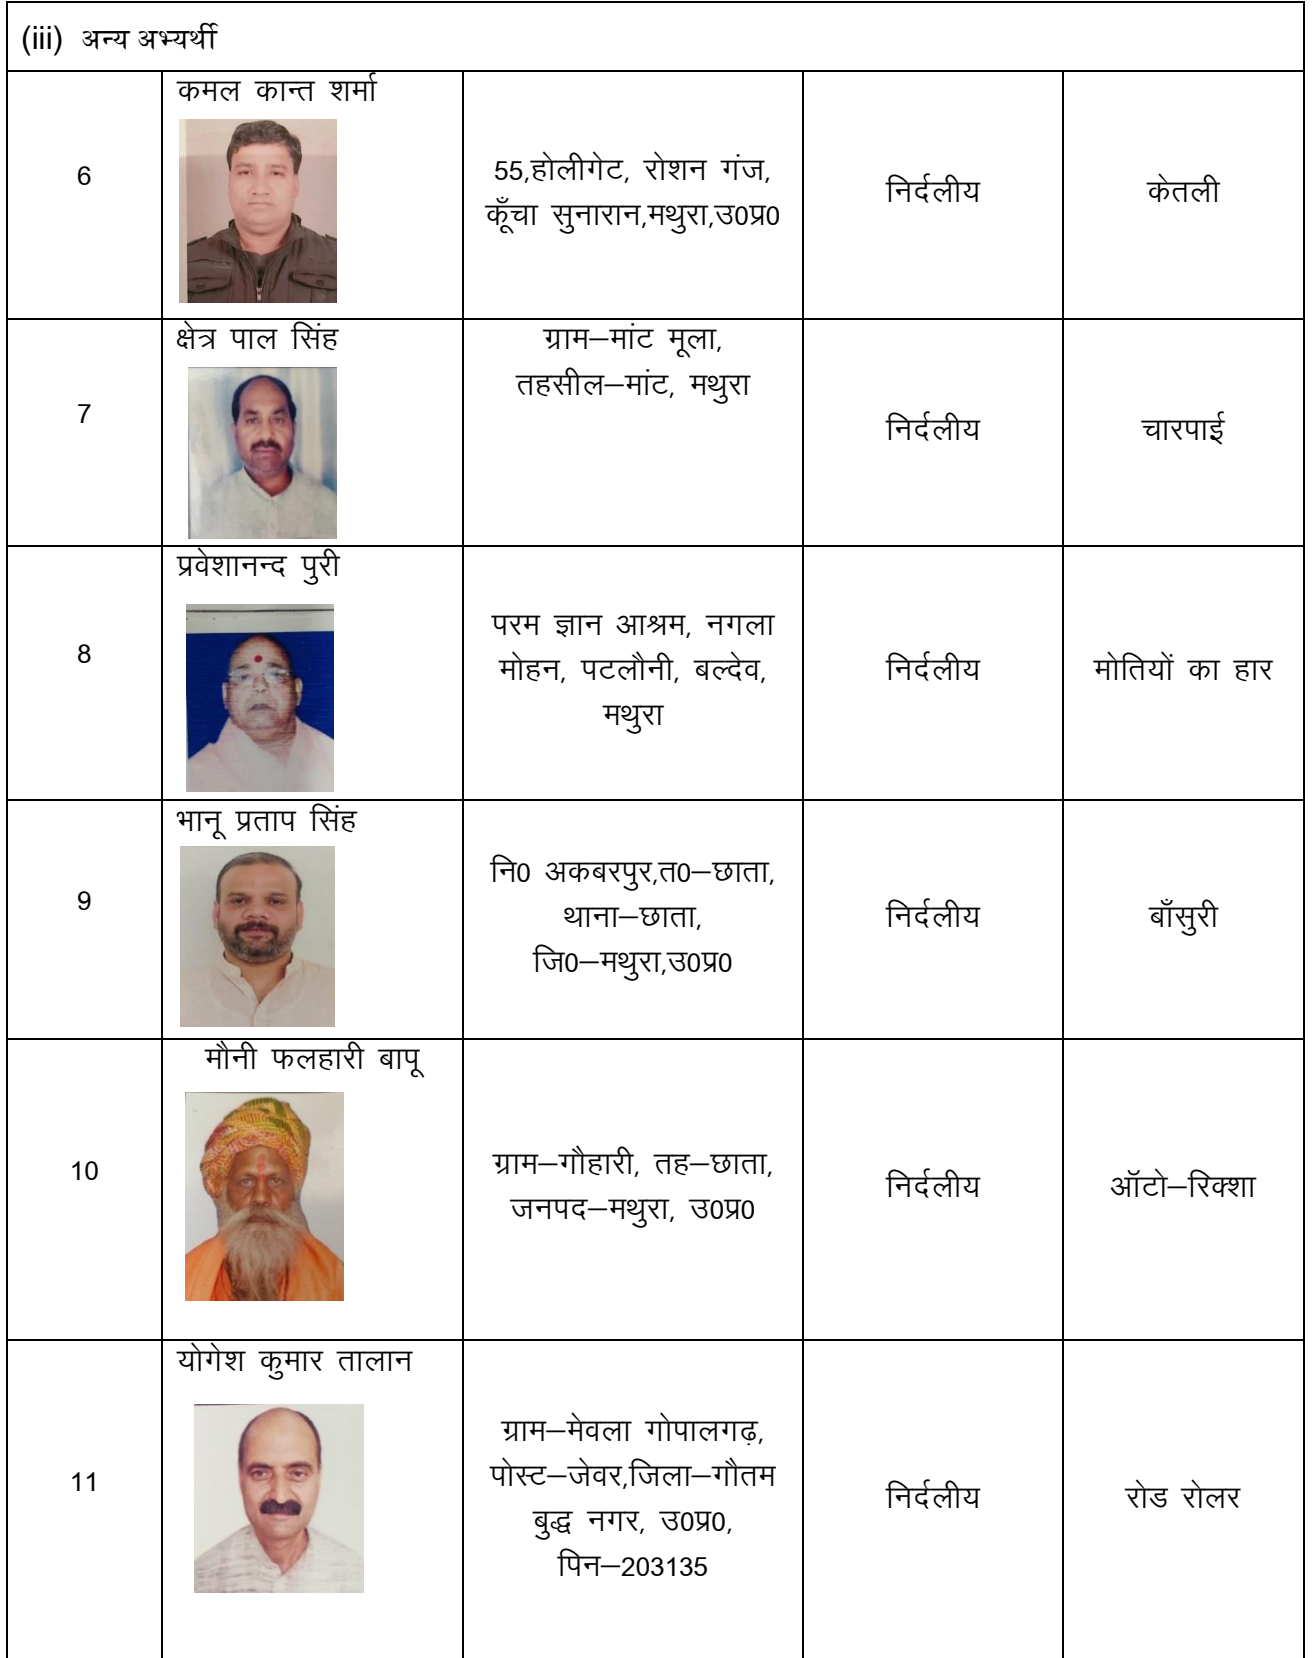 (iii) अन्य अभ्यर्थी
6
कमल कान्त शर्मा
55,होलीगेट, रोशन गंज,
कूँचा सुनारान,मथुरा,उ0प्र0
निर्दलीय
केतली
7
क्षेत्र पाल सिंह
ग्राम–मांट मूला,
तहसील–मांट, मथुरा
निर्दलीय
चारपाई
8
प्रवेशानन्द पुरी
परम ज्ञान आश्रम, नगला
मोहन, पटलौनी, बल्देव,
मथुरा
निर्दलीय
मोतियों का हार
9
भानू प्रताप सिंह
नि0 अकबरपुर,त0–छाता,
थाना–छाता,
जि0–मथुरा,उ0प्र0
निर्दलीय
बाँसुरी
10
मौनी फलहारी बापू
ग्राम–गौहारी, तह–छाता,
जनपद–मथुरा, उ0प्र0
निर्दलीय
ऑटो–रिक्शा
11
योगेश कुमार तालान
ग्राम–मेवला गोपालगढ़,
पोस्ट–जेवर,जिला–गौतम
बुद्ध नगर, उ0प्र0,
पिन–203135
निर्दलीय
रोड रोलर